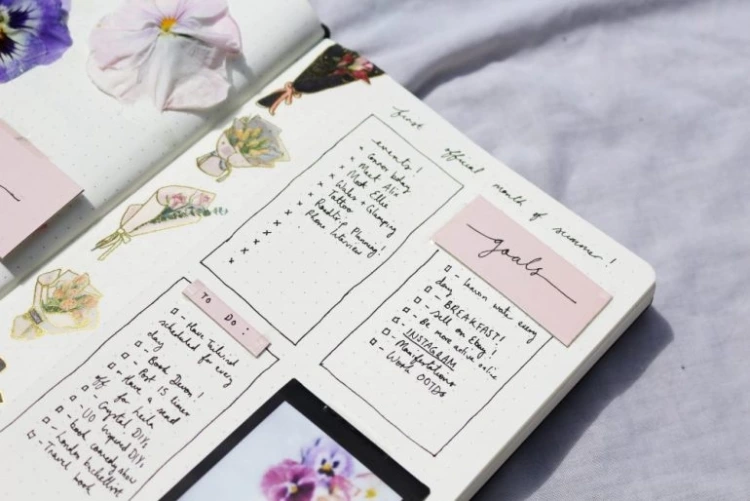 first official month of summer!
events!
x Connor bday
x Meet Alix
x Meet Ellie
x Wales + Glamping
x Tattoo
x Roadtrip Planning!
x Phone Interview!
x
x
goals
- Lemon water every
day
- BREAKFAST!
- Sell on Ebay!
- Be more active online
INSTAGRAM
- Manifestations
- Work OOTDs
TO DO:
- Have
scheduled for every
day
- Book Devon!
- Post 15 lines
off for
- Have a read
- Crystal DIY,
- UO Inspired DIY,
- book comedy show
- London bucketlist
- Travel book